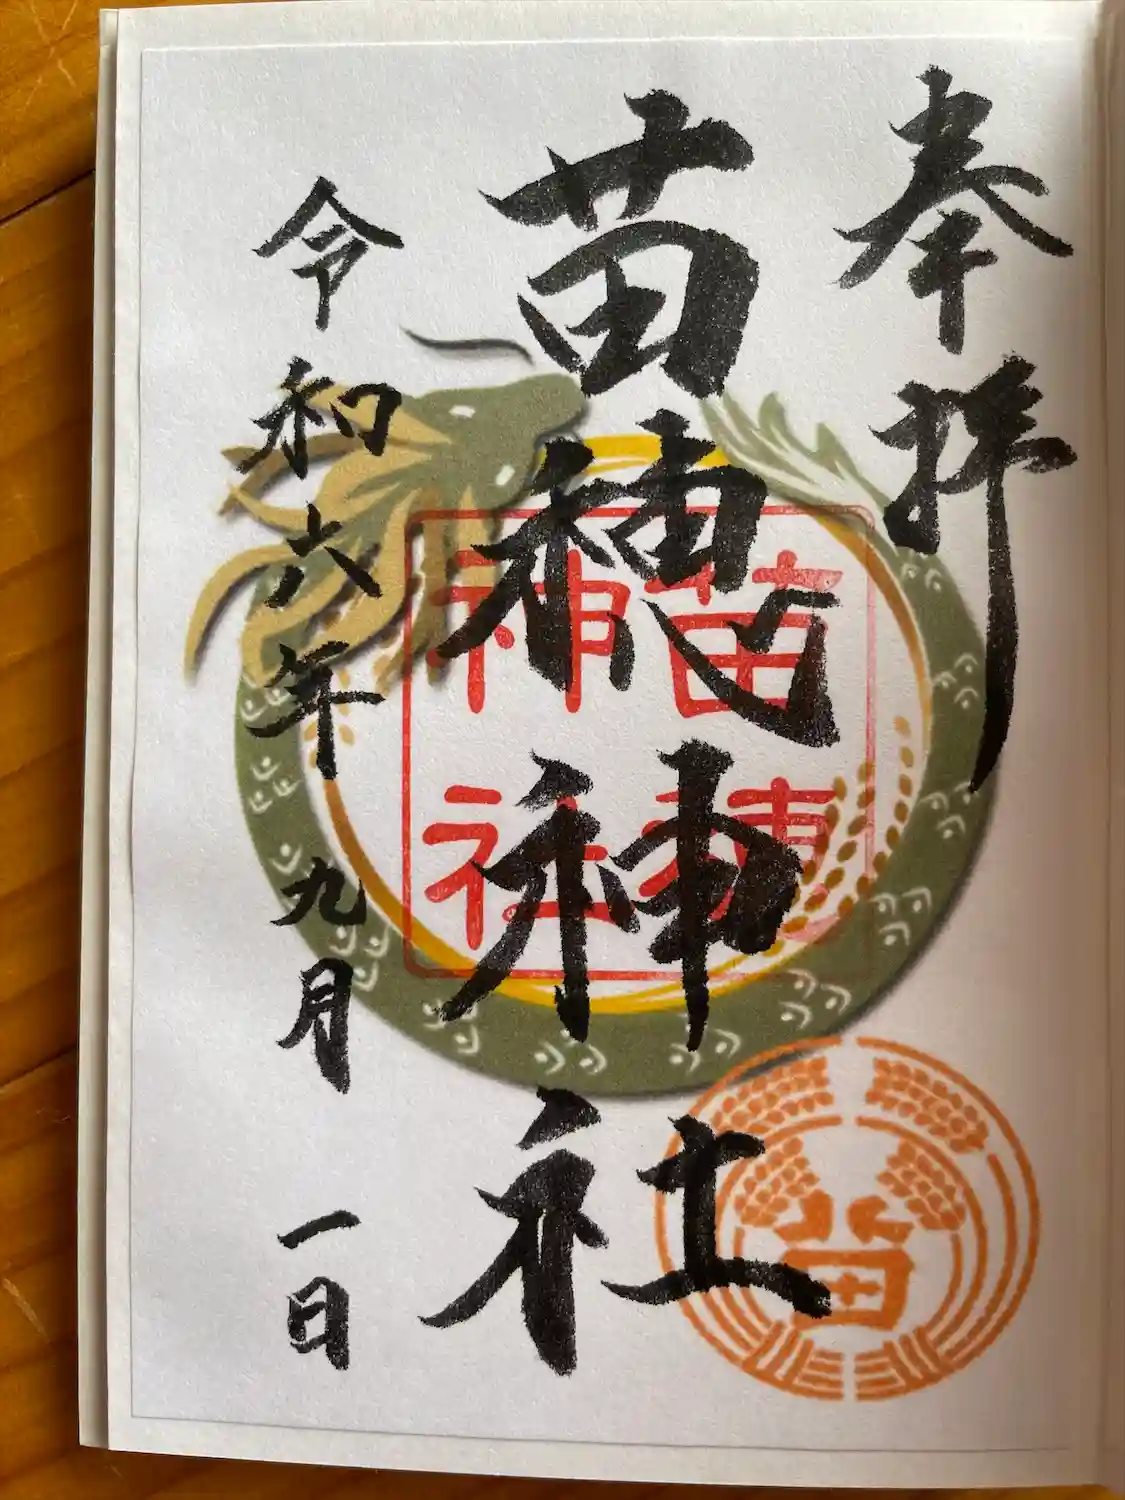 奉拝
苗穂神社
令和六年九月一日
苗穂
神社
苗